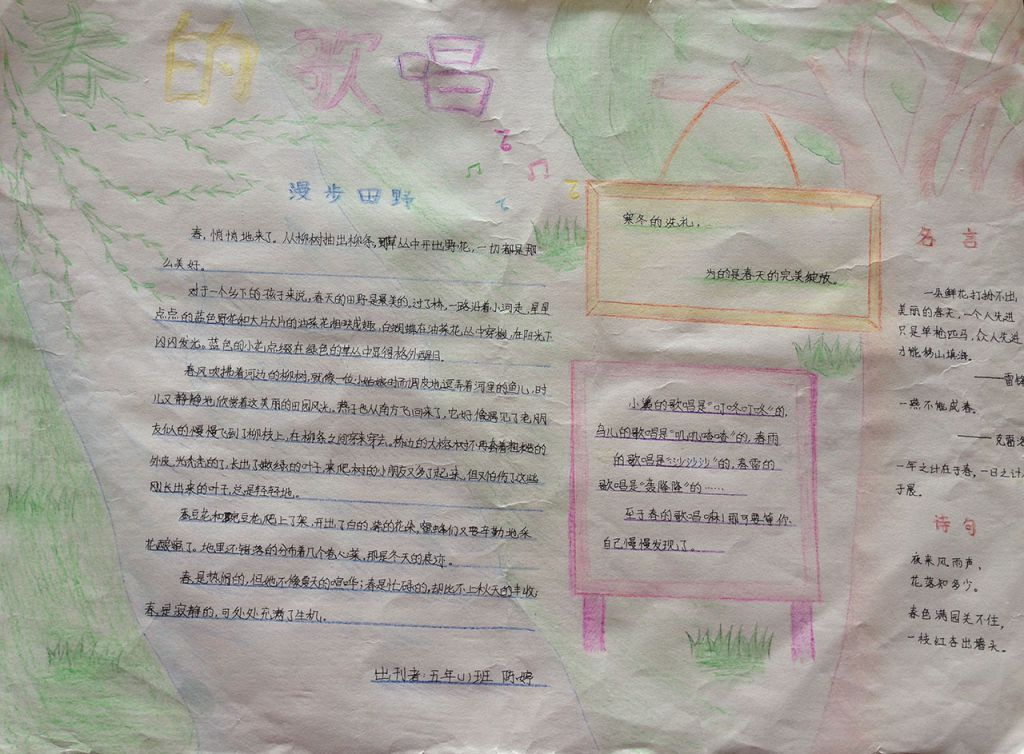 春的歌唱
漫步田野
春,悄悄地来了。从柳树抽出柳条,到草丛中开出野花,一切都是那
么美好。
对于一个乡下的孩子来说,春天的田野是最美的。过了桥,一路沿着小河走,星星
点点的蓝色野花和大片大片的油菜花相映成趣,白蝴蝶在油菜花丛中穿梭,在阳光下
闪闪发光。蓝色的小花点缀在绿色的草丛中显得格外醒目。
春风吹拂着河边的柳树,就像一位小姑娘时而调皮地逗弄着河里的鱼儿,时
儿又静静地欣赏着这美丽的田园风光。燕子也从南方飞回来了,它好像遇见了老朋
友似的慢慢飞到了柳枝上,在柳条之间穿来穿去。桥边的大榕树不再套着粗糙的
外皮,光秃秃的了,长出了嫩绿的叶子,来爬树的小朋友又多了起来,但又怕伤了这些
刚长出来的叶子,总是轻轻地。
蚕豆花和豌豆花爬上了架,开出了白的、紫的花朵,蜜蜂们又要辛勤地采
花酿蜜了。地里还错落的分布着几个卷心菜,那是冬天的痕迹。
春,是热闹的,但她不像夏天的喧哗;春是忙碌的,却比不上秋天的丰收;
春,是寂静的,可处处充满了生机。
出刊者:五年(1)班 陈婷
寒冬的洗礼,
为的是春天的完美绽放。
小溪的歌唱是“叮咚叮咚”的,
鸟儿的歌唱是“叽叽喳喳”的,春雨
的歌唱是“沙沙沙沙”的,春雷的
歌唱是“轰隆隆”的……
至于春的歌唱嘛!那可要等你
自己慢慢发现了。
名言
一朵鲜花打扮不出
美丽的春天,一个人先进
只是单枪匹马,众人先进
才能移山填海。
——雷锋
一燕不能成春。
——克雷洛
一年之计在于春,一日之计
于晨。
诗句
夜来风雨声,
花落知多少。
春色满园关不住,
一枝红杏出墙头。